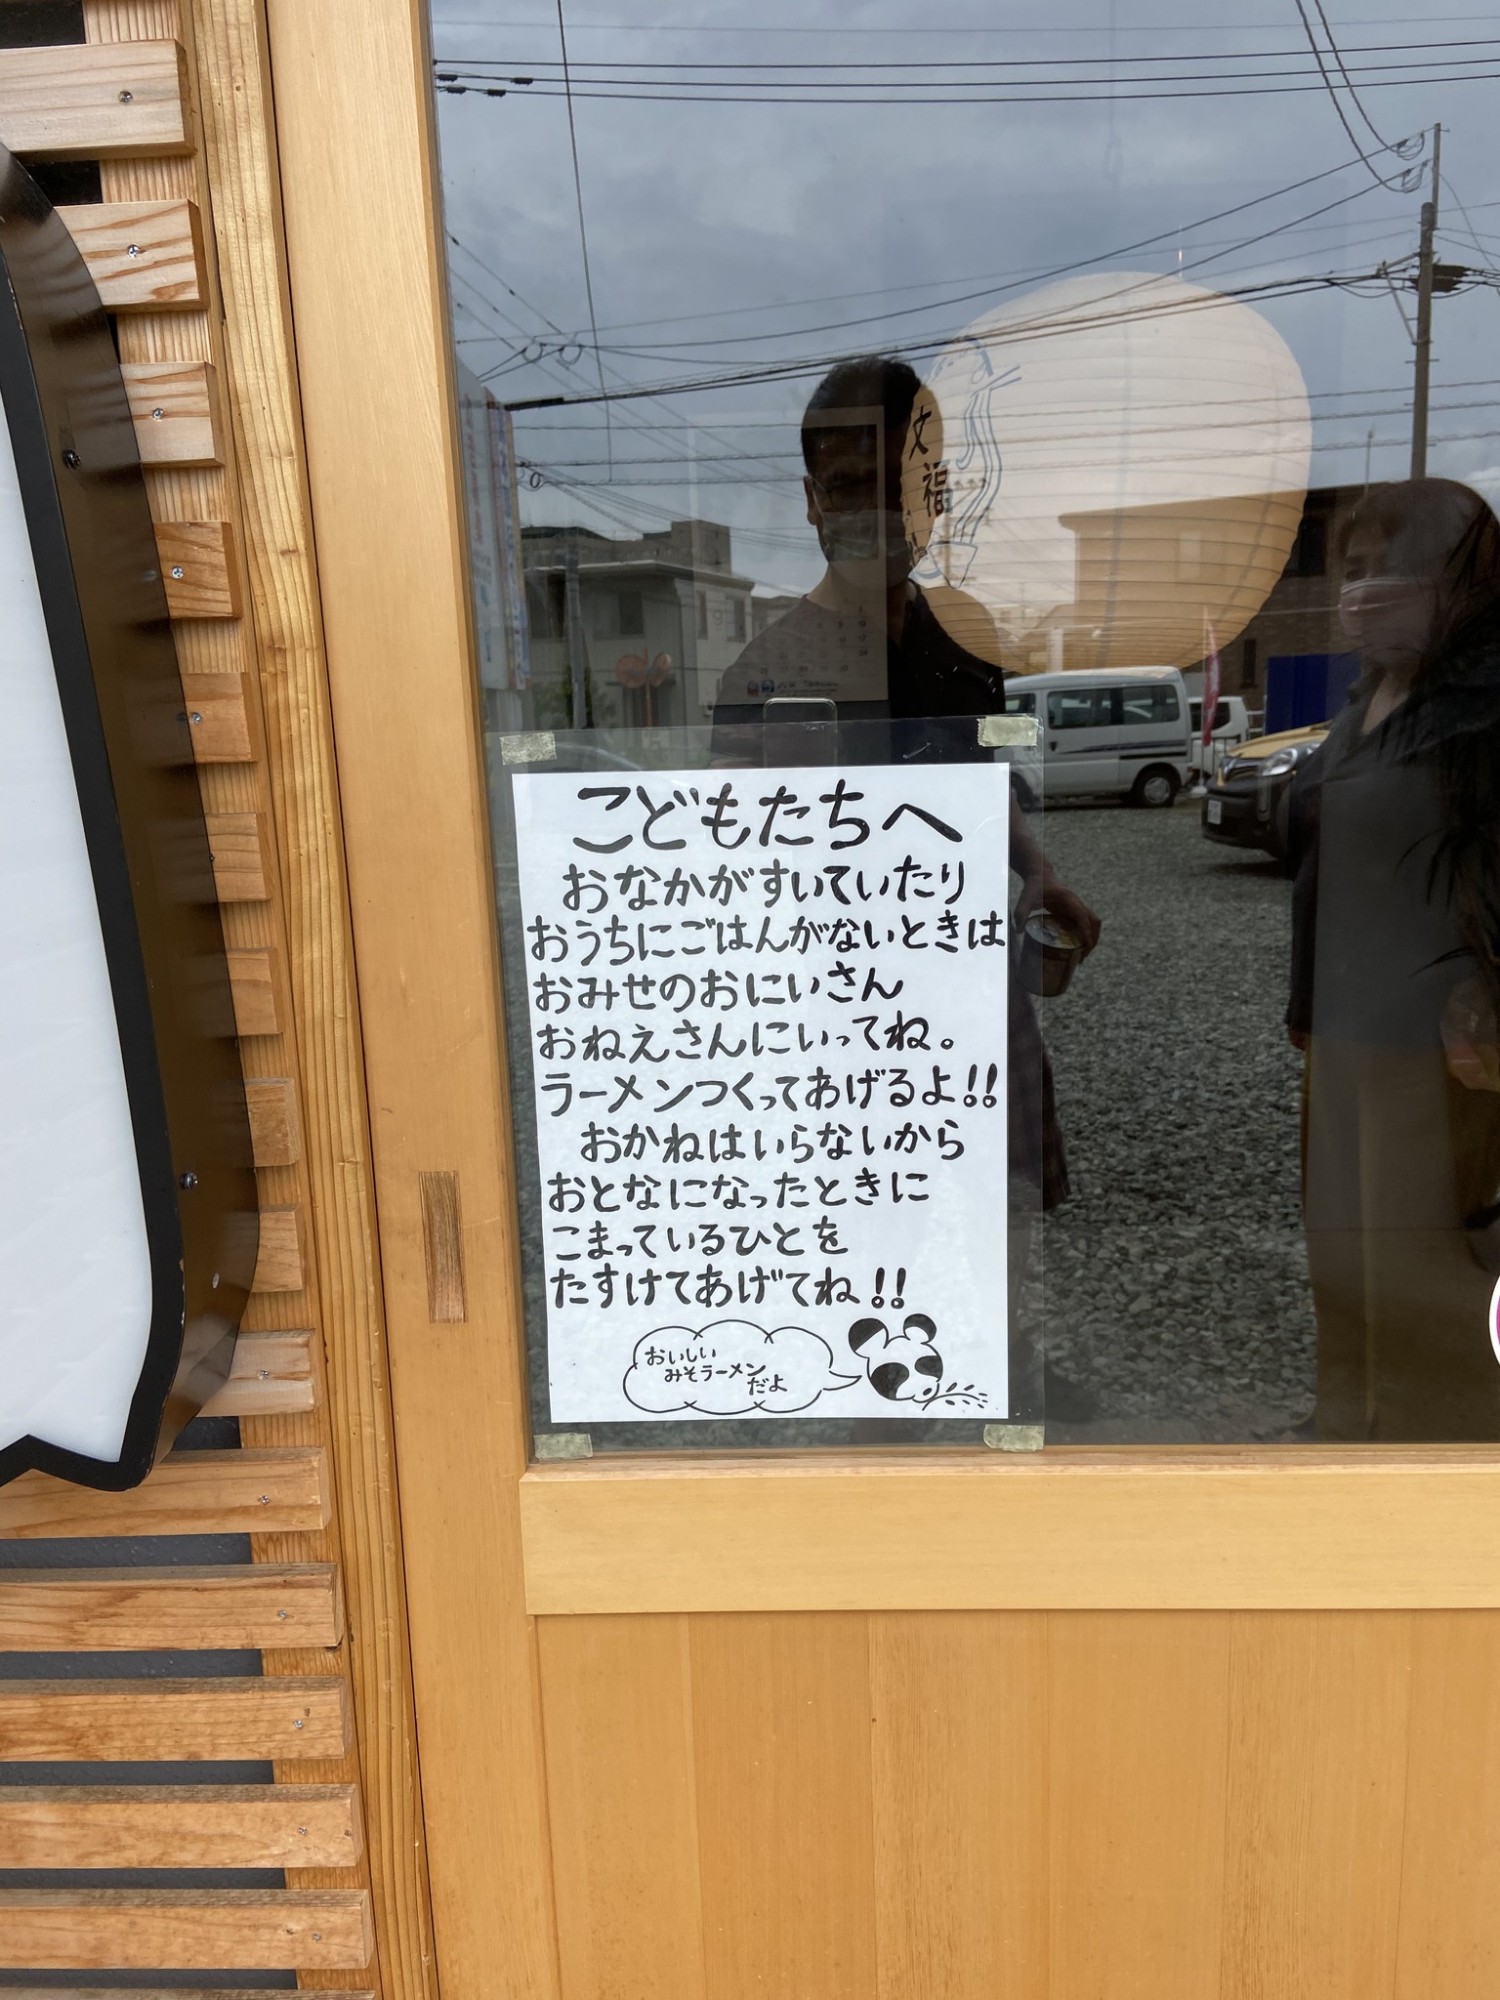 文福
こどもたちへ
おなかがすいていたり
おうちにごはんがないときは
おみせのおにいさん
おねえさんにいってね。
ラーメンつくってあげるよ!!
おかねはいらないから
おとなになったときに
こまっているひとを
たすけてあげてね!!
おいしい
みそラーメン
だよ